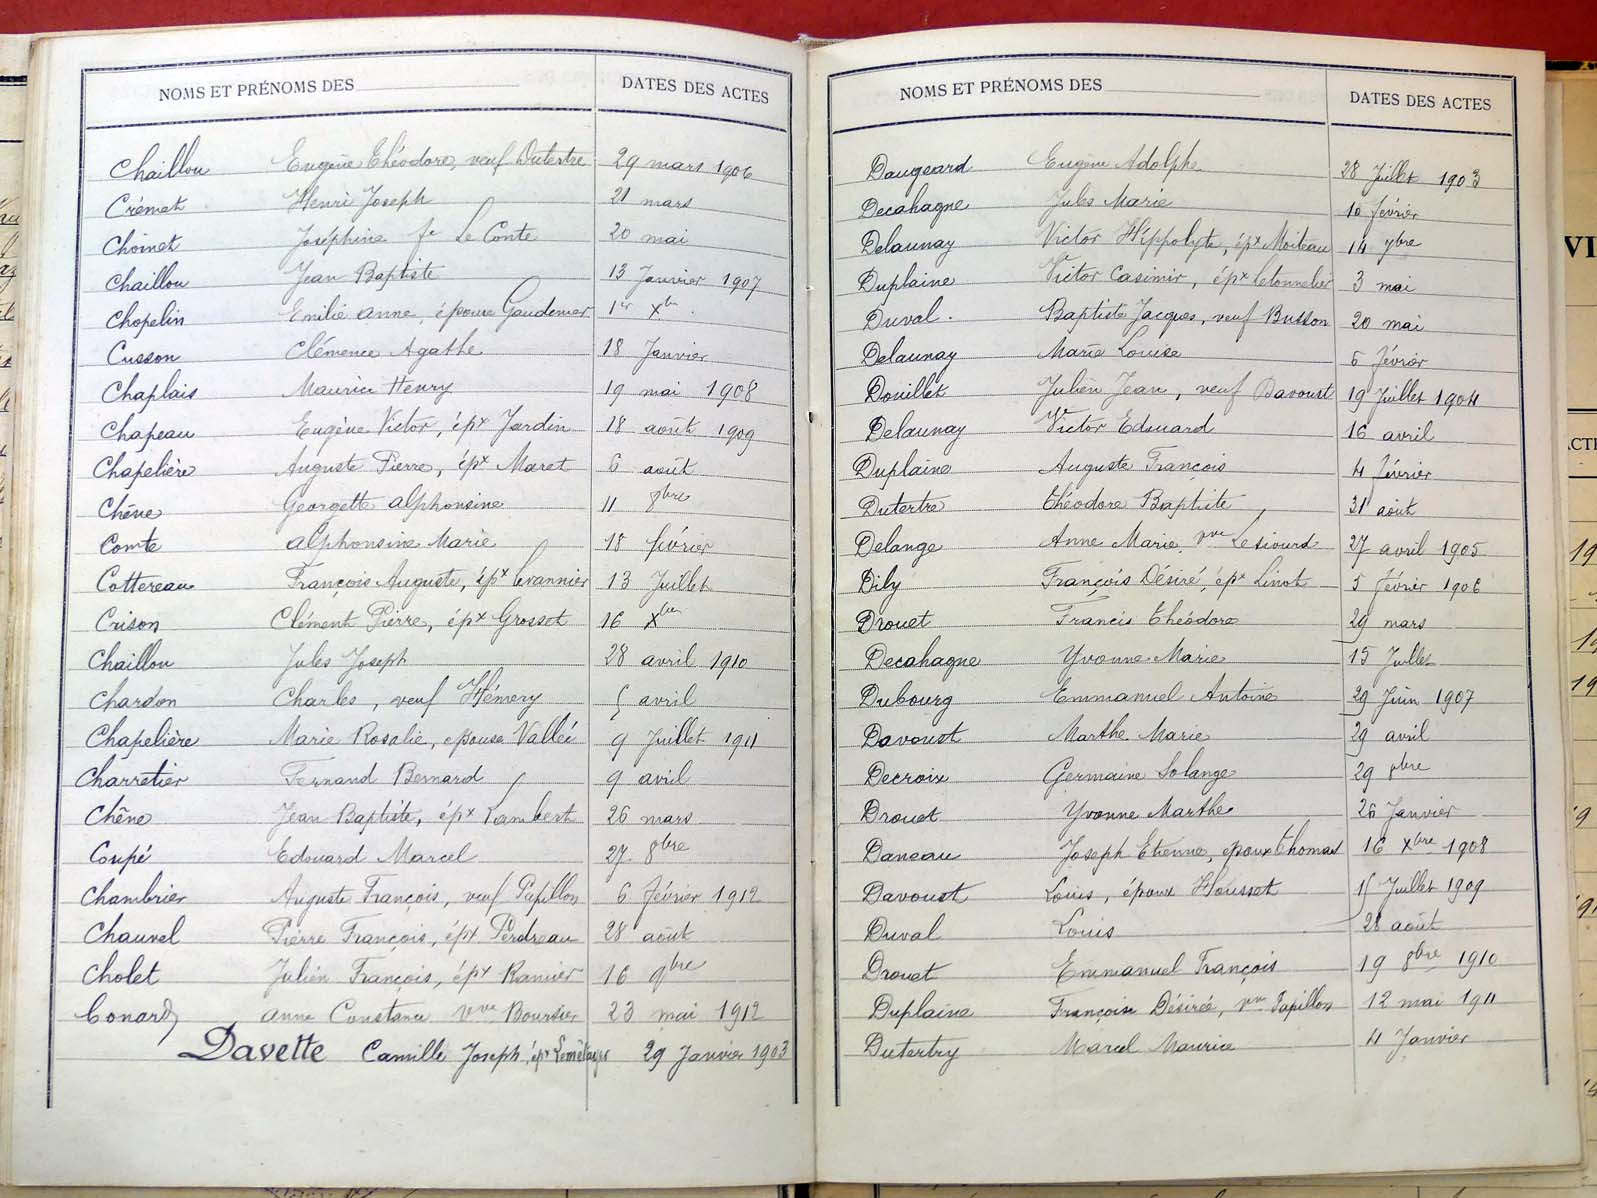 NOMS ET PRÉNOMS DES DATES DES ACTES
Chaillou Eugène Théodore, veuf Dutertre 29 mars 1906
Crémet Henri Joseph 21 mars
Choinet Joséphine fe Le Conte 20 mai
Chaillou Jean Baptiste 13 Janvier 1907
Chopelin Emilie Anne, épouse Gaudemer 1er Xbre
Cusson Clémence Agathe 18 Janvier
Chaplais Maurice Henry 19 mai 1908
Chapeau Eugène Victor, épx Jardin 18 août 1909
Chapelière Auguste Pierre, épx Maret 6 août
Chêne Georgette Alphonsine 11 8bre
Comte Alphonsine Marie 18 février
Cottereau François Auguste, épx Levannier 13 Juillet
Crison Clément Pierre, épx Grosset 16 Xbre
Chaillou Jules Joseph 28 avril 1910
Chardon Charles, veuf Hémery 5 avril
Chapelière Marie Rosalie, épouse Vallée 9 Juillet 1911
Charretier Fernand Bernard 9 avril
Chêne Jean Baptiste, épx Lambert 26 mars
Coupé Edouard Marcel 27 8bre
Chambrier Auguste François, veuf Papillon 6 février 1912
Chauvel Pierre François, épx Perdreau 28 août
Cholet Julien François, épx Ramier 16 9bre
Conard Anne Constance Vve Boursier 23 mai 1912
Davette Camille Joseph, épx 29 Janvier 1903
NOMS ET PRÉNOMS DES DATES DES ACTES
Daugeard Eugène Adolphe 28 Juillet 1903
Decahagne Jules Marie 10 février
Delaunay Victor Hippolyte, épx Moiteau 14 9bre
Duplaine Victor Casimir, épx Letonnelier 3 mai
Duval Baptiste Jacques, veuf Busson 20 mai
Delaunay Marie Louise 6 février
Douillet Julien Jean, veuf Davoust 19 Juillet 1904
Delaunay Victor Edouard 16 avril
Duplaine Auguste François 4 février
Dutertre Théodore Baptiste 31 août
Delange Anne Marie, vve Lesiourd 27 avril 1905
Dily François Désiré, épx Linot 5 février 1906
Drouet Francis Théodore 29 mars
Decahagne Yvonne Marie 15 Juillet
Dubourg Emmanuel Antoine 29 Juin 1907
Davoust Marthe Marie 29 avril
Decroix Germaine Solange 29 8bre
Drouet Yvonne Marthe 26 Janvier
Daneau Joseph Etienne, époux Thomas 16 Xbre 1908
Davoust Louis, époux Housset 15 Juillet 1909
Duval Louis 28 août
Drouet Emmanuel François 19 8bre 1910
Duplaine Françoise Désirée, vve Papillon 12 mai 1911
Dutertry Marcel Maurice 11 Janvier